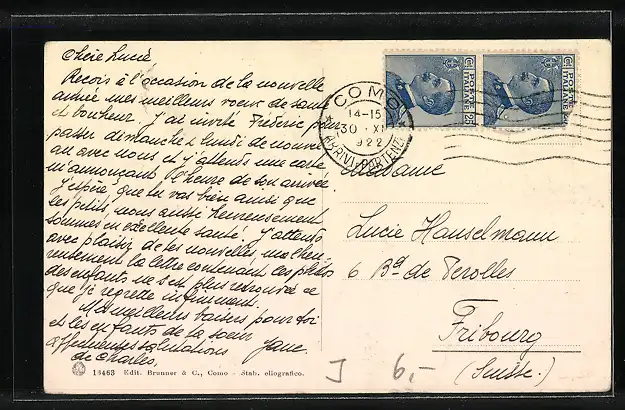 Chère Lucie
Reçois à l'occasion de la nouvelle
année mes meilleurs voeux de santé
et bonheur. J'ai invité Frédéric pour
passer dimanche & lundi de nouvel
an avec nous et j'attends une carte
m'annonçant l'heure de son arrivée.
J'espère que tu vas bien ainsi que
les petits, nous aussi heureusement
sommes en excellente santé. J'attends
avec plaisir de tes nouvelles, malheu-
reusement la lettre contenant les photos
des enfants ne s'est plus retrouvée ce
que je regrette infiniment.
Mes meilleurs baisers pour toi
et les enfants de ta soeur
Jane
affectueuses salutations
de Charles
13463 Edit. Brunner & C., Como - Stab. eliografico.
POSTE ITALIANE
POSTE ITALIANE
COMO
14-15
30 XII
922
ARRIVI PARTENZE
Madame
Lucie Hanselmann
6 Bd de Perolles
Fribourg
(Suisse.)
J 6,-